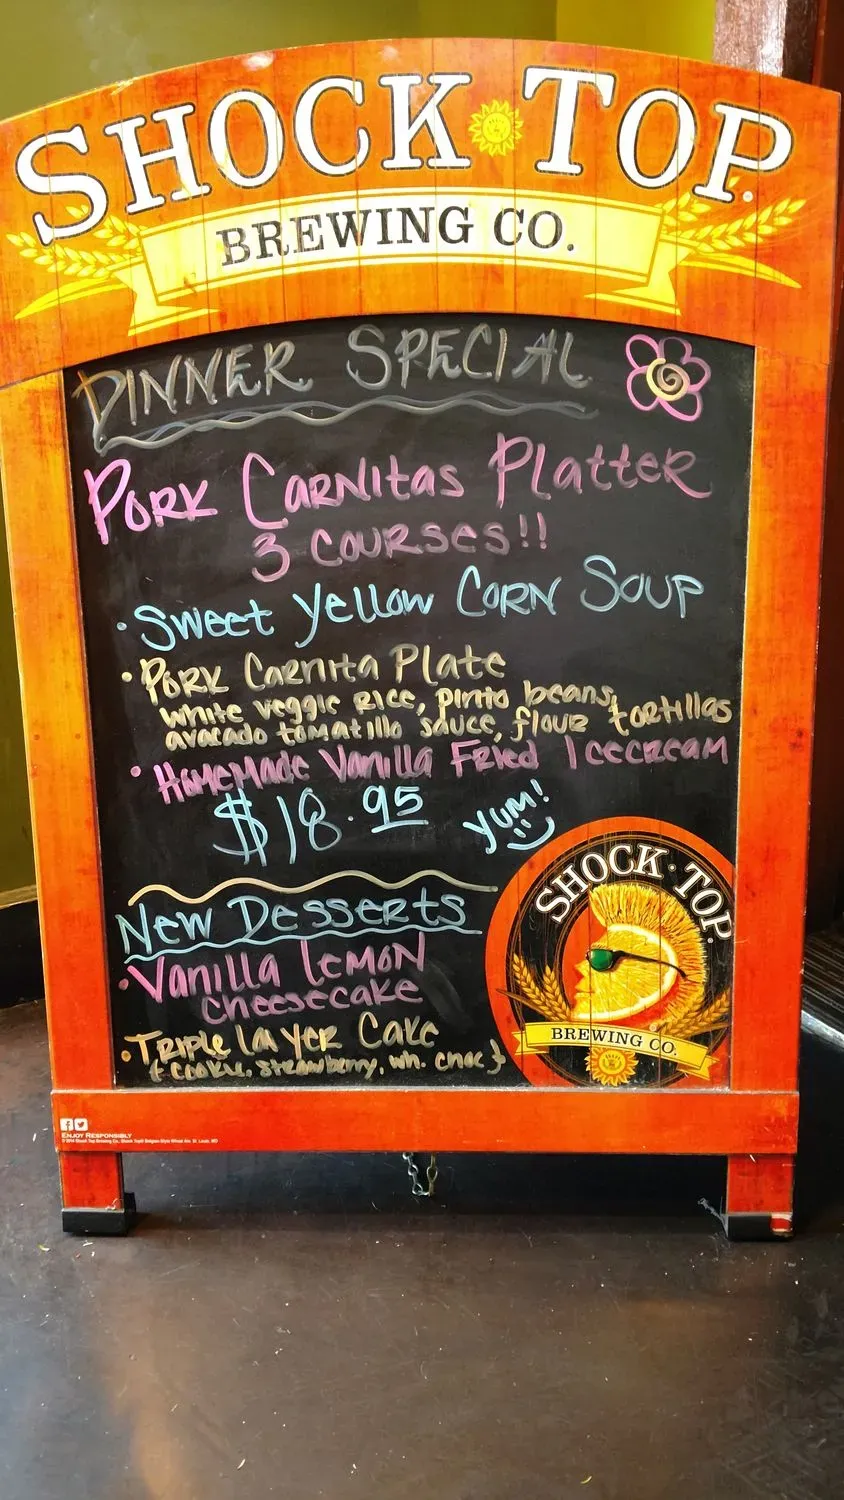 SHOCK TOP
BREWING CO.
DINNER SPECIAL
PORK CARNITAS PLATTER
3 COURSES!!
• SWEET YELLOW CORN SOUP
• PORK CARNITA PLATE
WHITE VEGGIE RICE, PINTO BEANS,
AVOCADO TOMATILLO SAUCE, FLOUR TORTILLAS
• HOMEMADE VANILLA FRIED ICECREAM
$18.95
YUM!
NEW DESSERTS
• VANILLA LEMON
CHEESECAKE
• TRIPLE LAYER CAKE
{ COOKIE, STRAWBERRY, WH. CHOC }
SHOCK • TOP
BREWING CO.
ENJOY RESPONSIBLY